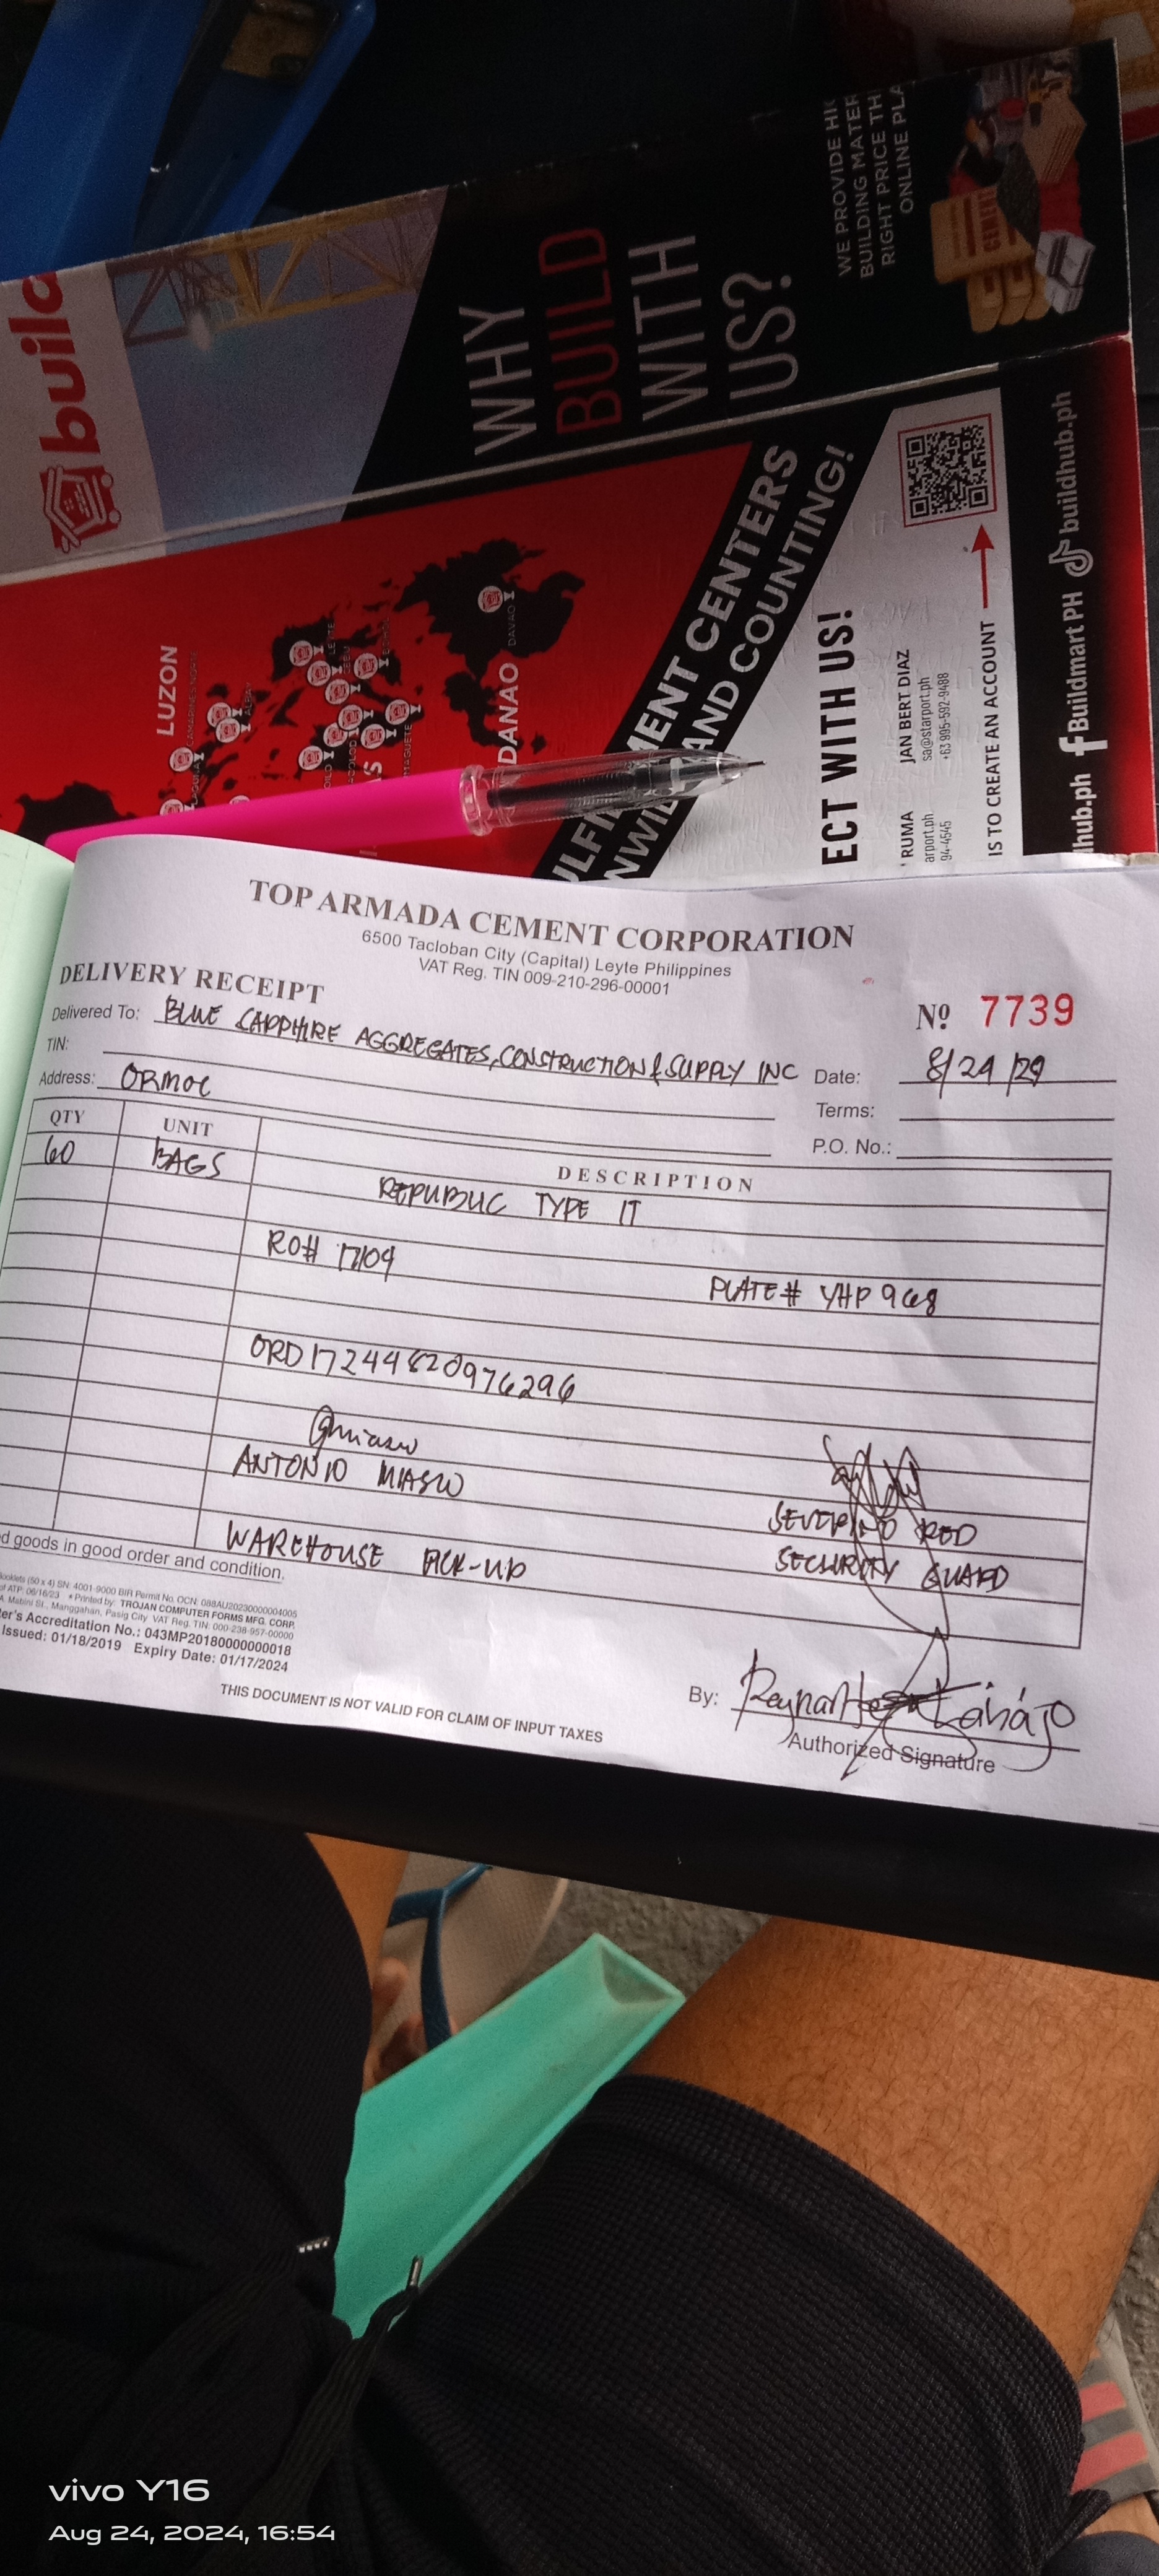 build
WHY
BUILD
WITH
US?
WE PROVIDE
BUILDING MATER
RIGHT PRICE TH
ONLINE PLA
LUZON
DAVAO
DANAO
LEYTE
ALBAY
MENT CENTERS
AND COUNTING!
ECT WITH US!
RUMA
arport.ph
94-4545
JAN BERT DIAZ
sa@starport.ph
+63 995-592-9488
IS TO CREATE AN ACCOUNT
lhub.ph Buildmart PH buildhub.ph
TOP ARMADA CEMENT CORPORATION
6500 Tacloban City (Capital) Leyte Philippines
VAT Reg. TIN 009-210-296-00001
DELIVERY RECEIPT
Nº 7739
Delivered To: BLUE SAPPHIRE AGGREGATES, CONSTRUCTION & SUPPLY INC
Date: 8/24/24
TIN:
Terms:
Address: ORMOC
P.O. No.:
QTY UNIT DESCRIPTION
60 BAGS REPUBLIC TYPE IT
RO# 17109
PLATE# YHP 968
ORD17244820976296
ANTONIO MIASCO
SEVERINO RED
WAREHOUSE PICK-UP
SECURITY GUARD
d goods in good order and condition.
ooklets (50 x 4) SN: 4001-9000 BIR Permit No. OCN: 088AU20230000004005
of ATP: 06/16/23 * Printed by: TROJAN COMPUTER FORMS MFG. CORP.
A. Mabini St., Manggahan, Pasig City VAT Reg. TIN: 000-238-957-00000
er's Accreditation No.: 043MP20180000000018
Issued: 01/18/2019 Expiry Date: 01/17/2024
THIS DOCUMENT IS NOT VALID FOR CLAIM OF INPUT TAXES
By:
Authorized Signature
vivo Y16
Aug 24, 2024, 16:54